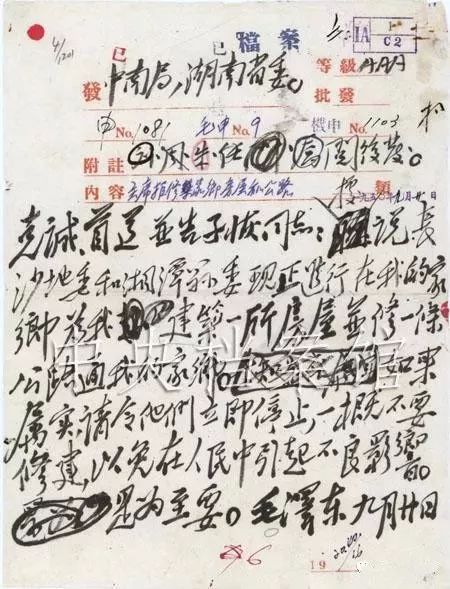 檔案
等級AAA
發 中南局,湖南省委。 批發
申 No. 1081 毛申 No. 9 機申 No. 1103
附註
內容 類
克誠、首道並告子恢同志:據說長
沙地委和湘潭縣委現正進行在我的家
鄉為我建築一所房屋並修一條
公路通我的家鄉。如果
屬實,請令他們立即停止,一概不要
修建,以免在人民中引起不良影響。
是為至要。毛澤東 九月廿日
IA
C2
19
中央档案馆